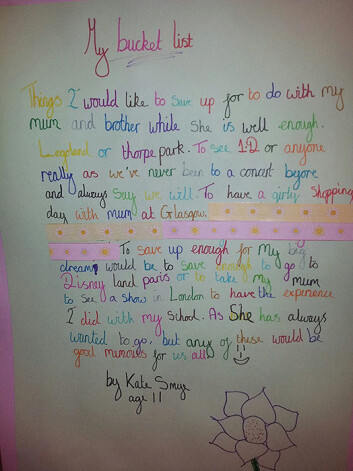 My bucket list
Things I would like to save up for to do with my
mum and brother while she is well enough.
Legoland or thorpe park. To see 1D or anyone
really as we've never been to a concert before
and always say we will. To have a girly shopping
day with mum at Glasgow.
To save up enough for my big
dream would be to save enough to go to
Disney land paris or to take my mum
to see a show in London to have the experience
I did with my school. As She has always
wanted to go, but any of these would be
good memories for us all
by Kate Smye
age 11